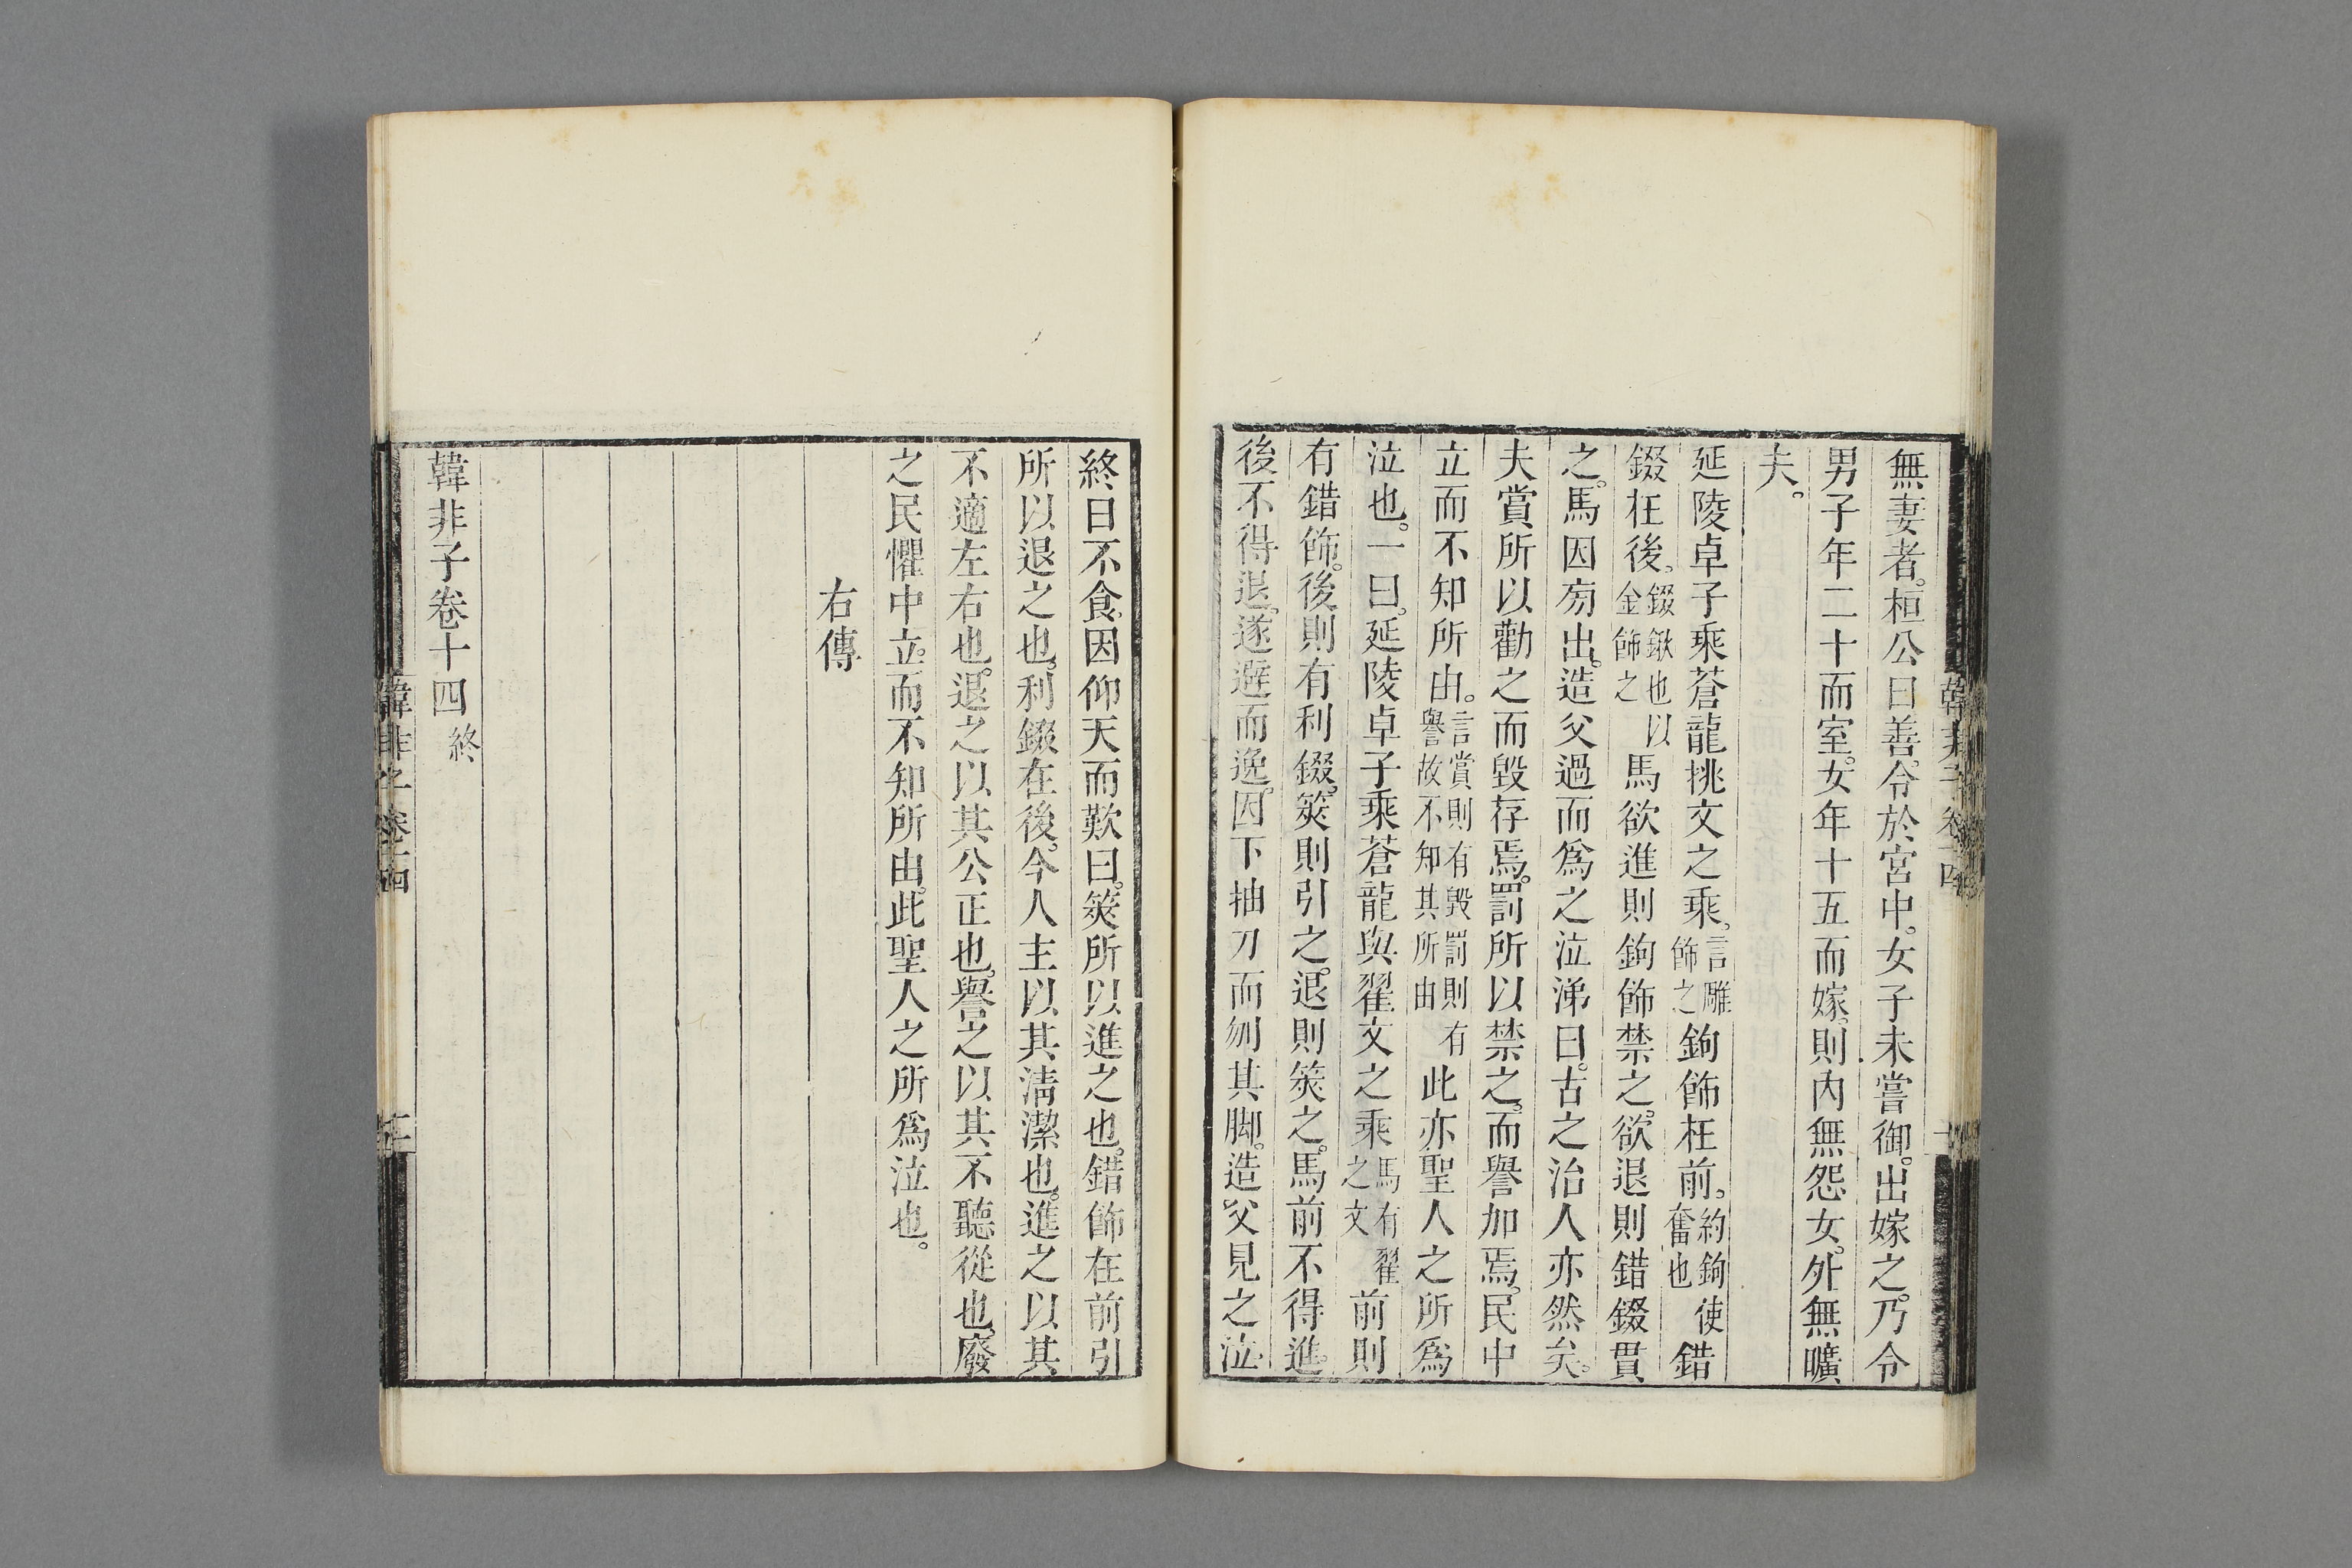 無妻者。桓公曰善。令於宮中。女子未嘗御。出嫁之。乃令
男子年二十而室。女年十五而嫁。則內無怨女。外無曠
夫。
延陵卓子乘蒼龍挑文之乘。言雕飾之鉤飾在前。約鉤使奮也錯
錣在後。錣鍬也以金飾之馬欲進則鉤飾禁之。欲退則錯錣貫
之。馬因旁出。造父過而爲之泣涕曰。古之治人亦然矣。
夫賞所以勸之而毀存焉。罰所以禁之。而譽加焉。民中
立而不知所由。言賞則有毀罰則有譽故不知其所由此亦聖人之所爲
泣也。一曰。延陵卓子乘蒼龍與翟文之乘馬有翟之文前則
有錯飾。後則有利錣。筴則引之。退則筴之。馬前不得進。
後不得退。遂避而逸。因下抽刀而刎其脚。造父見之泣
終日不食。因仰天而歎曰。筴所以進之也。錯飾在前引
所以退之也。利錣在後。今人主以其淸潔也。進之以其
不適左右也。退之以其公正也。譽之以其不聽從也。廢
之民懼中立。而不知所由。此聖人之所爲泣也。
右傳
韓非子卷十四終
韓非子卷十四